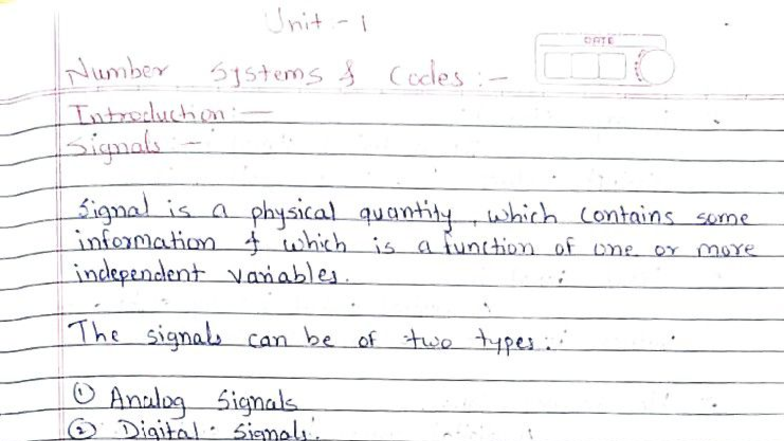 Unit - 1
DATE
Number Systems & Codes :-
Introduction :-
Signals :-
Signal is a physical quantity, which contains some
information & which is a function of one or more
independent variables.
The signals can be of two types :
① Analog Signals
② Digital Signals.